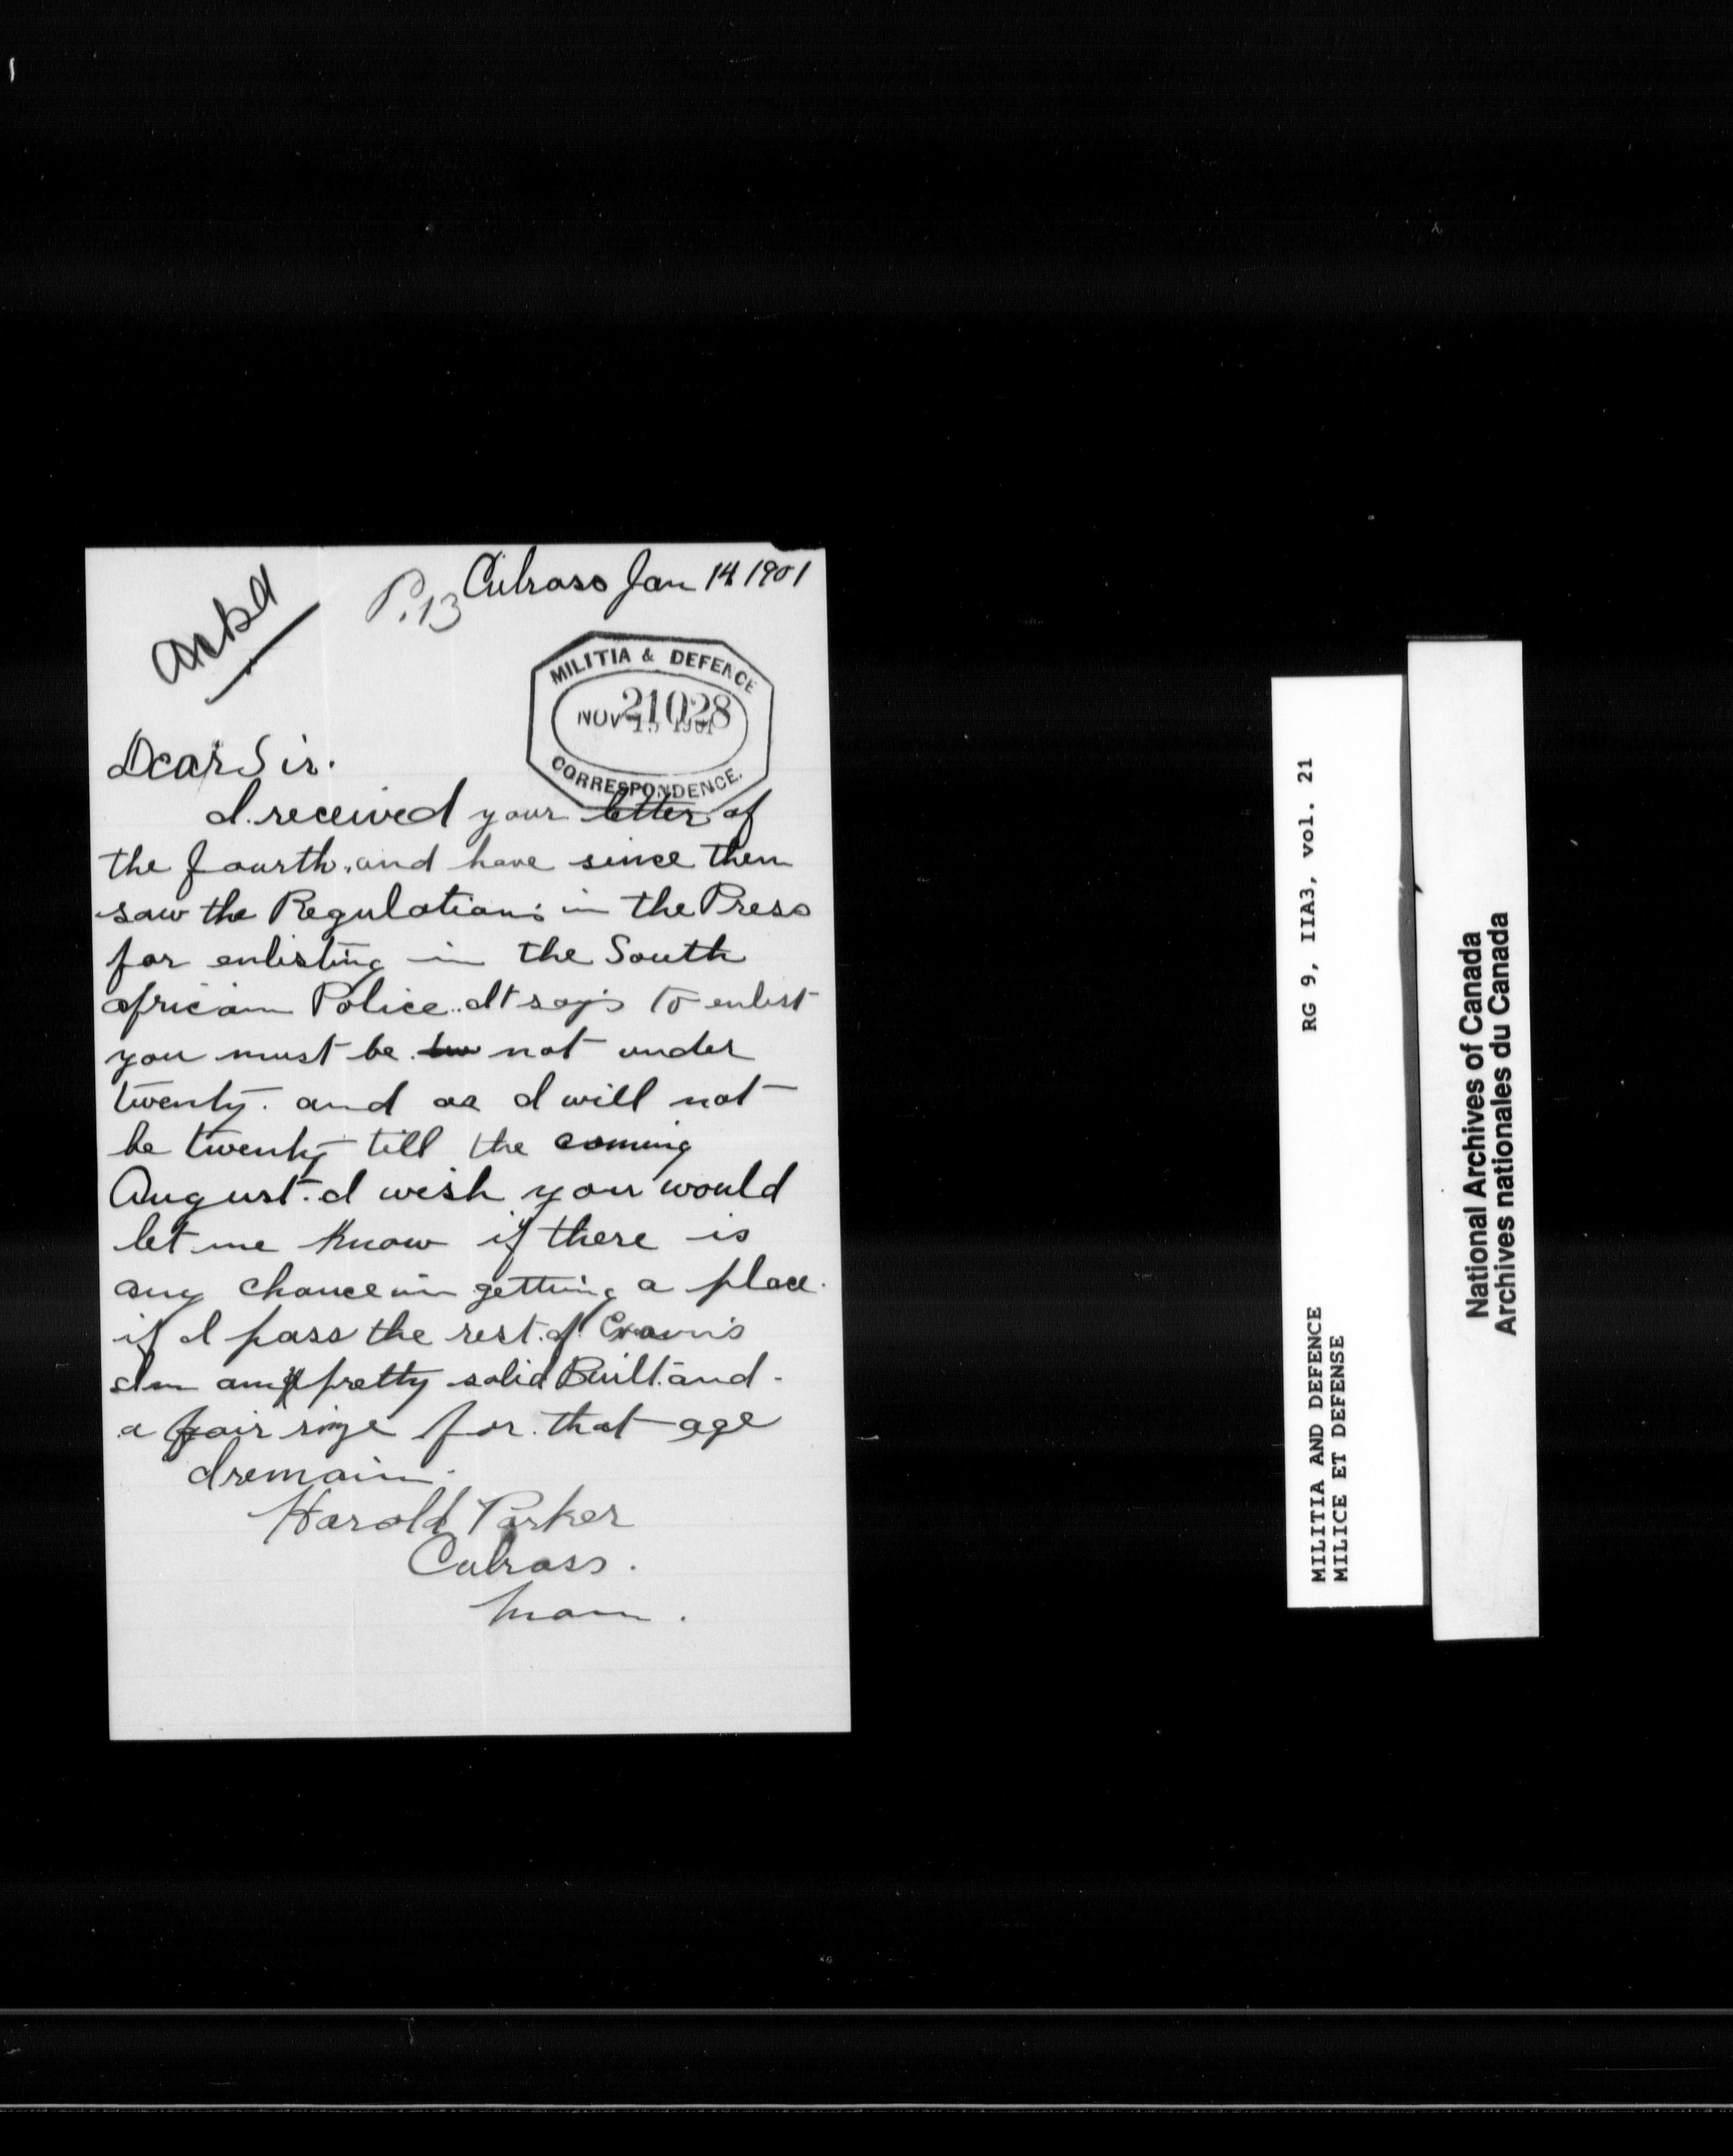 Culross Jan 14 1901
P. 13
Ackd
MILITIA & DEFENCE
21028
NOV 15 1901
CORRESPONDENCE.
Dear Sir.
I received your letter of
the fourth, and have since then
saw the Regulations in the Press
for enlisting in the South
african Police.. It say's to enlist
you must be not under
twenty. and as I will not
be twenty till the coming
August. I wish you would
let me know if there is
any chance in getting a place.
if I pass the rest. of Exam's
I'm pretty solid Built. and
a fair size for. that age
I remain.
Harold Parker
Culross.
Man.
MILITIA AND DEFENCE RG 9, IIA3, vol. 21
MILICE ET DEFENSE
National Archives of Canada
Archives nationales du Canada